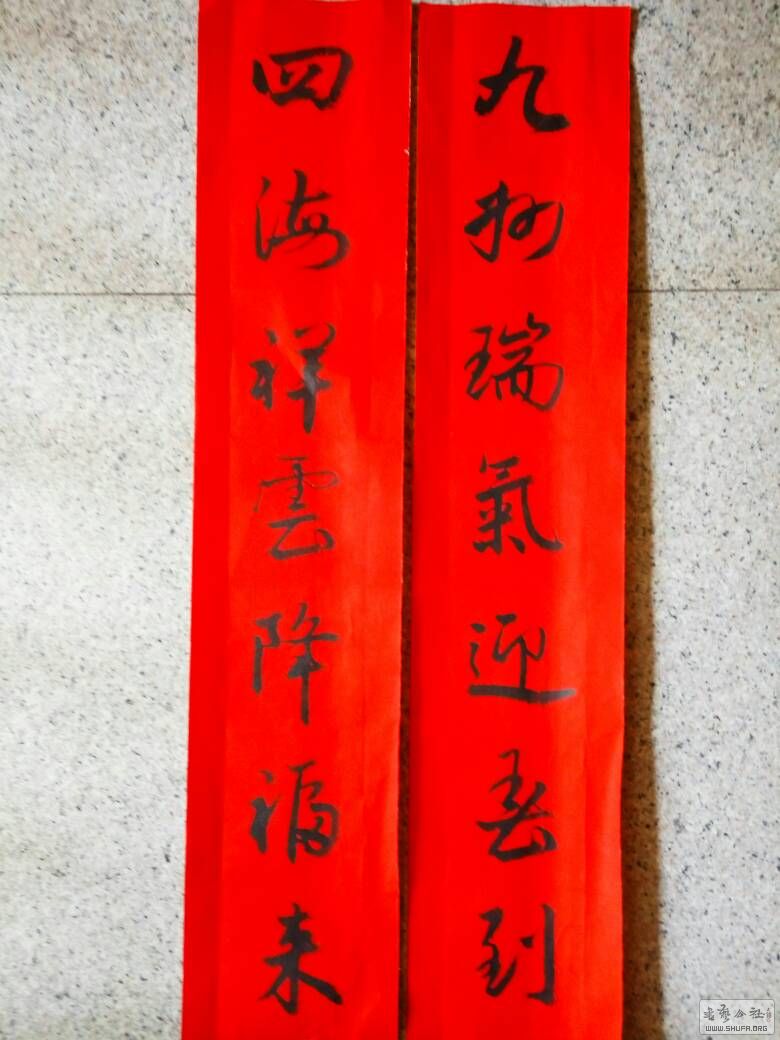 九州瑞氣迎春到
四海祥雲降福来
书艺公社
WWW.SHUFA.ORG